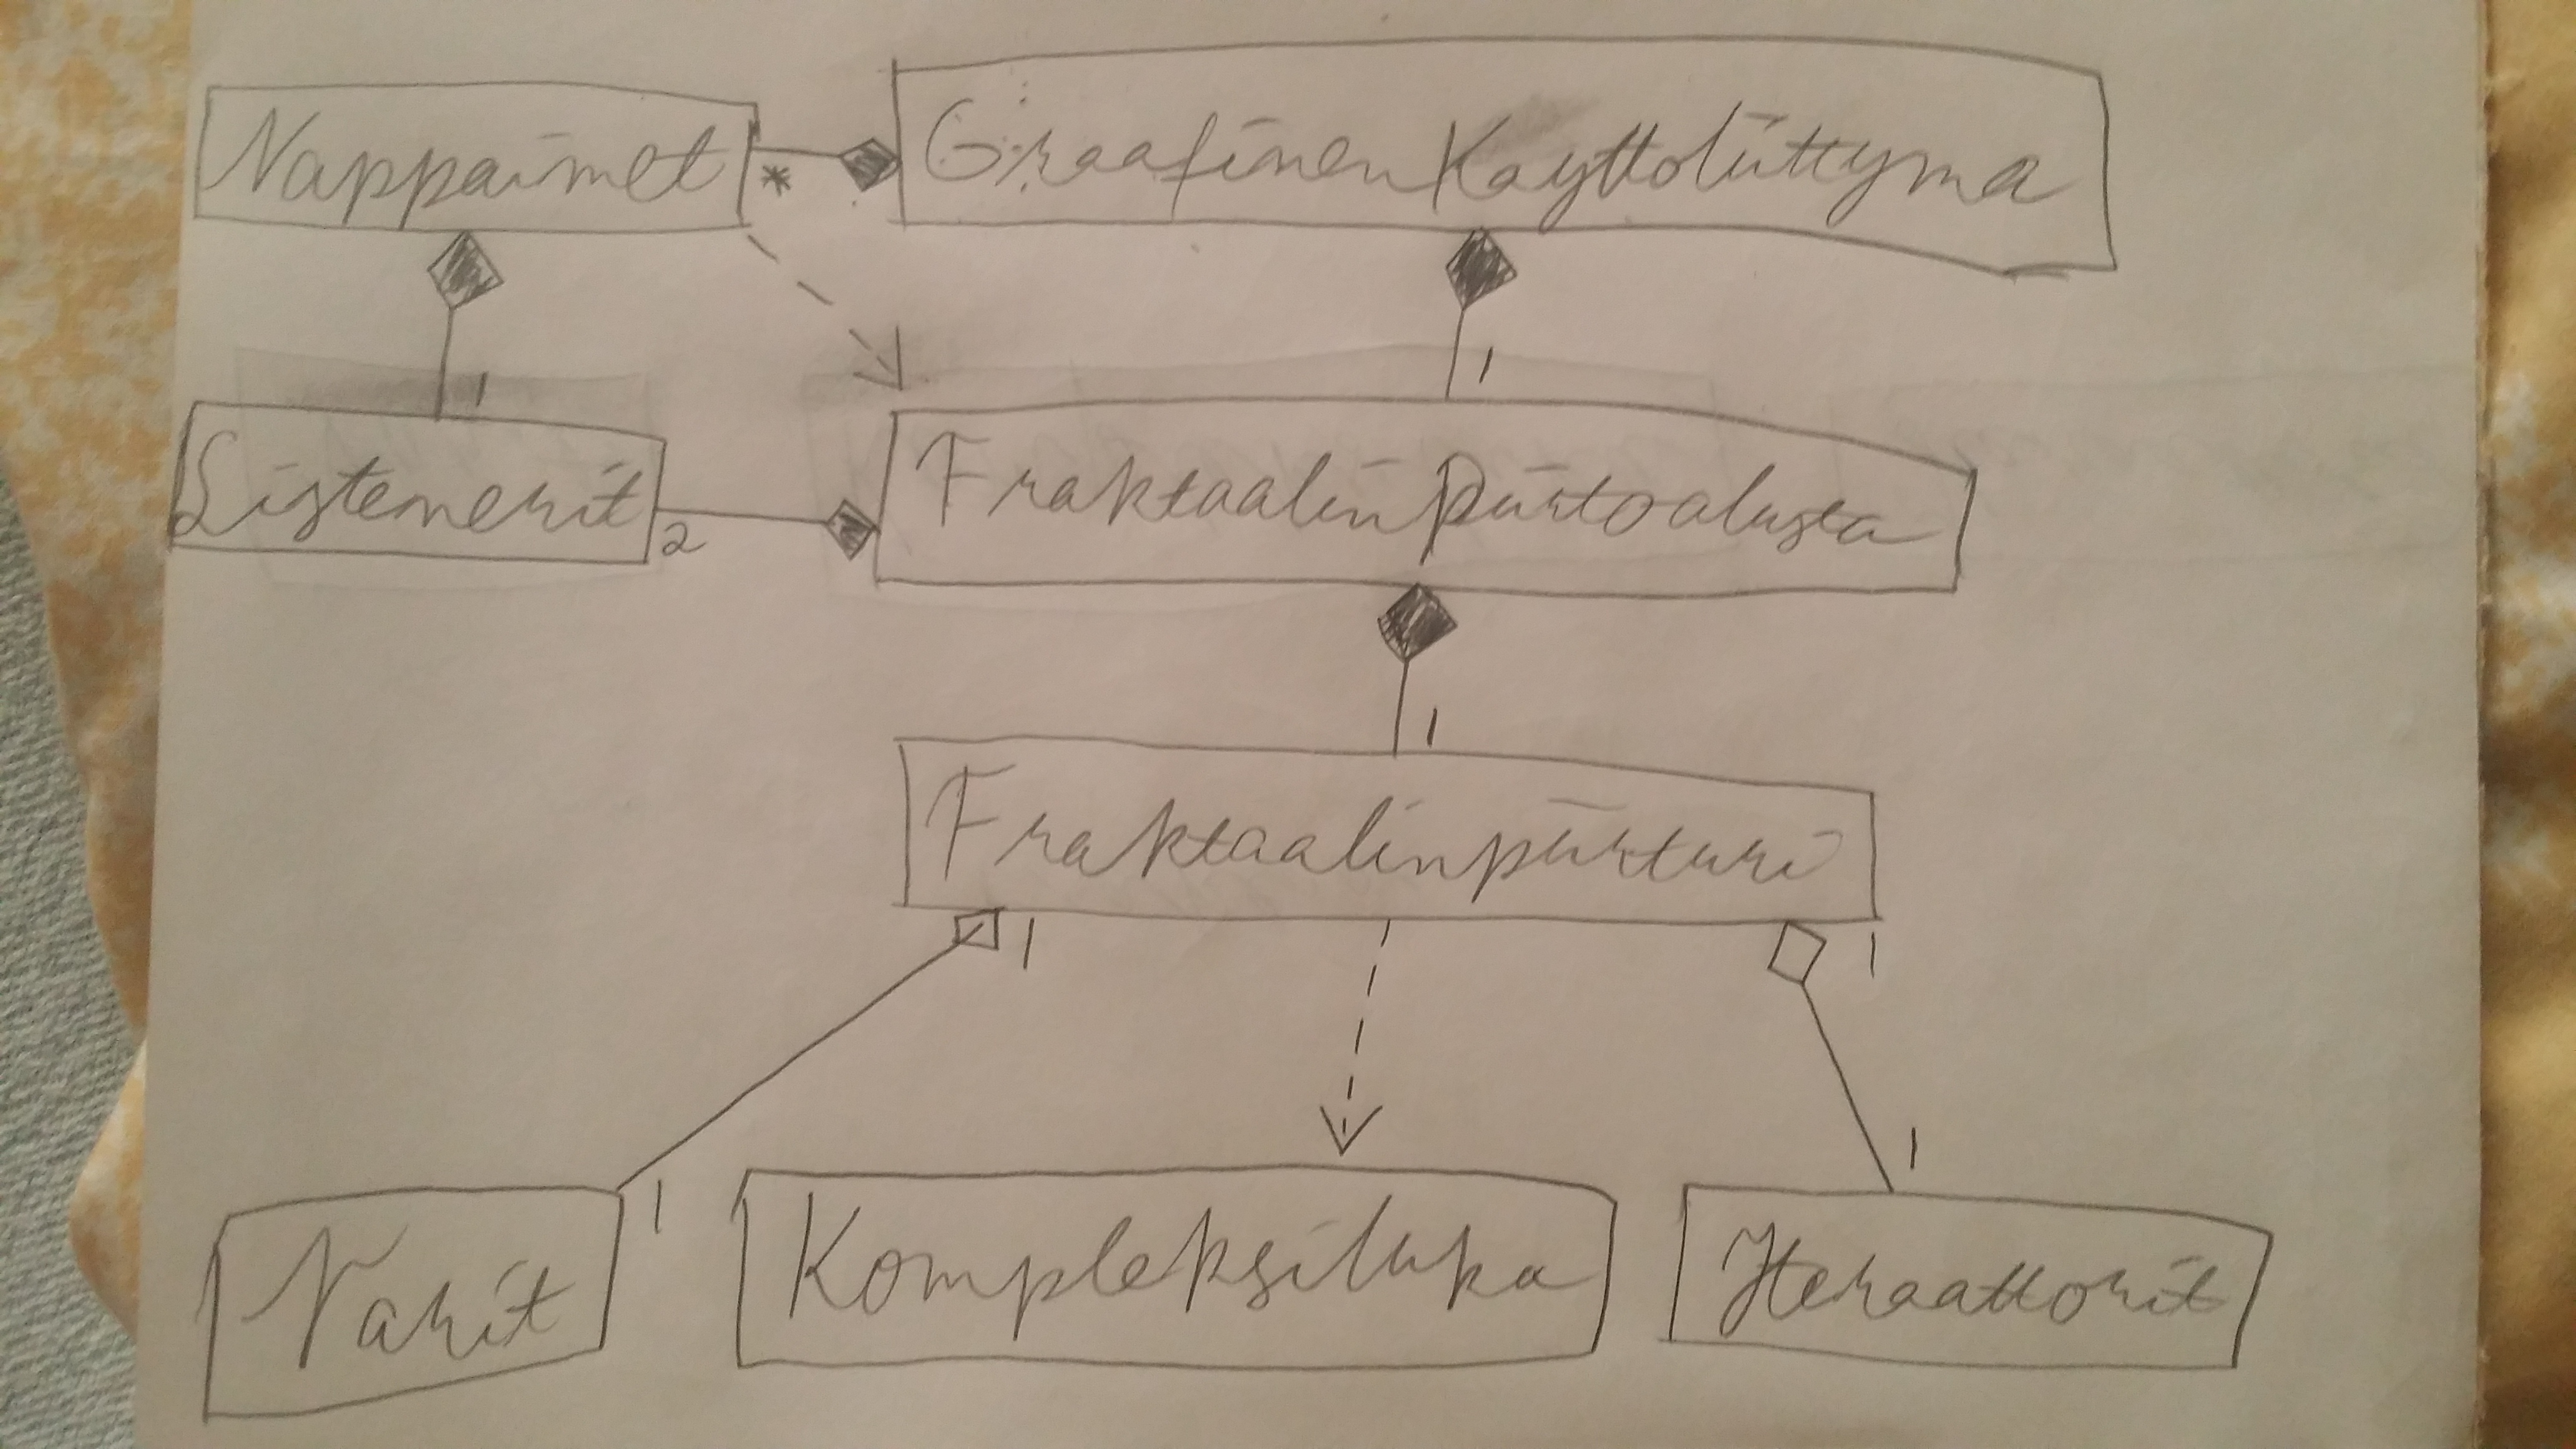 Nappaimet * GraafinenKayttoliittyma
1 1
Listenerit 2 FraktaalinPiirtoalusta
1
Fraktaalinpiirturi
1 1
1 1
Varit Kompleksiluku Iteraattorit